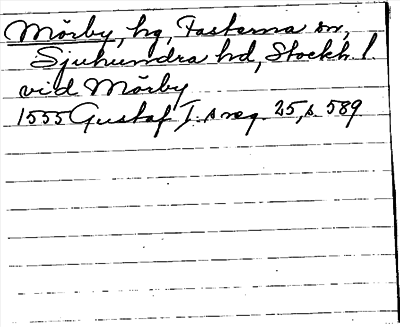 Mörby, hg, Fasterna sn,
Sjuhundra hd, Stockh. l.
vid Mörby
1555 Gustaf I:s reg. 25, s. 589